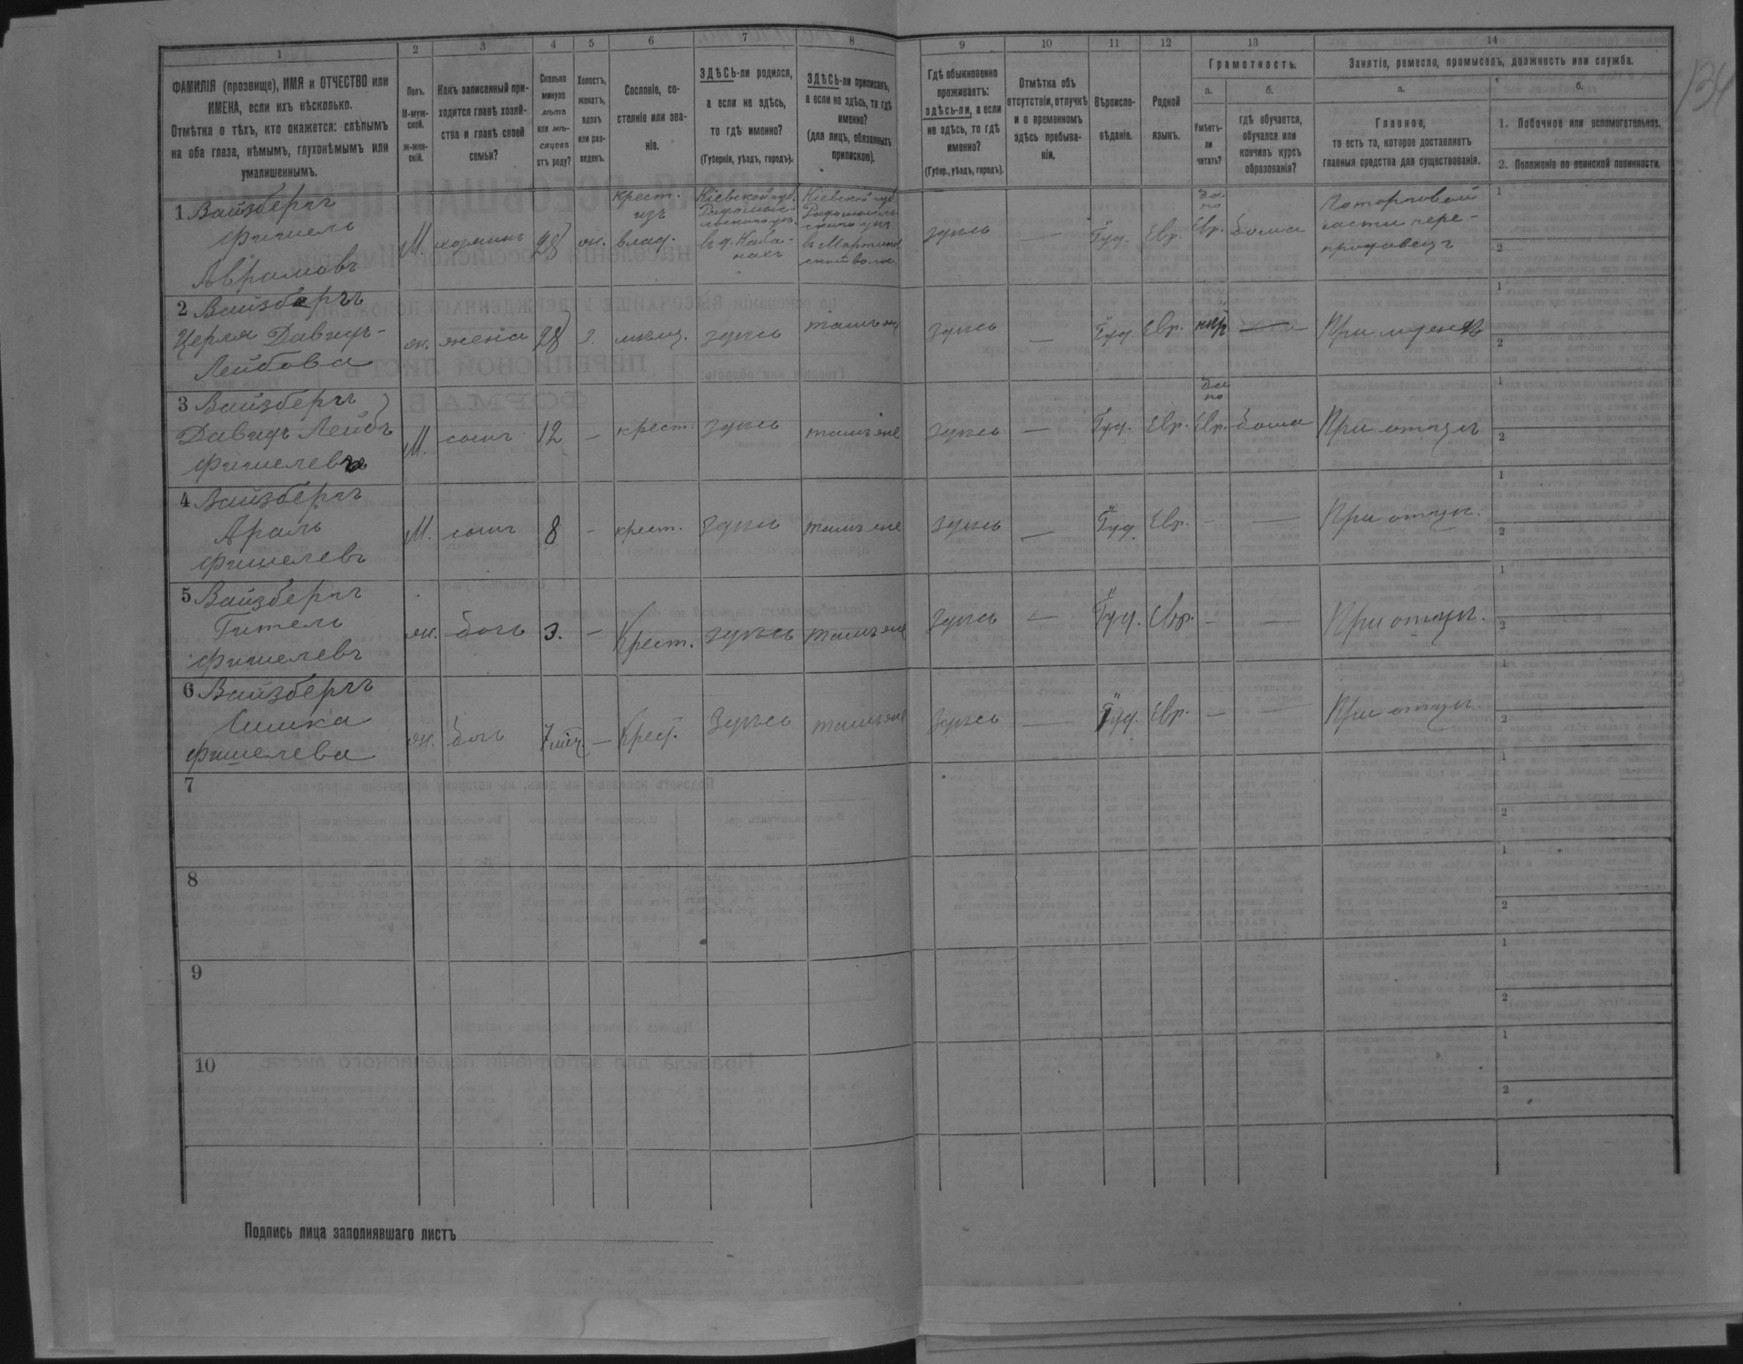 1 2 3 4 5 6 7 8 9 10 11 12 13 14
ФАМИЛІЯ (прозвище), ИМЯ и ОТЧЕСТВО или
ИМЕНА, если ихъ нѣсколько.
Отмѣтка о тѣхъ, кто окажется: слѣпымъ
на оба глаза, нѣмымъ, глухонѣмымъ или
умалишеннымъ.
Полъ.
М-муж-
ской.
Ж-жен-
скій.
Какъ записанный при-
ходится главѣ хозяй-
ства и главѣ своей
семьи?
Сколько
минуло
лѣтъ
или мѣ-
сяцевъ
отъ роду?
Холостъ,
женатъ,
вдовъ
или раз-
веденъ.
Сословіе, со-
стояніе или зва-
ніе.
ЗДѢСЬ-ли родился,
а если не здѣсь,
то гдѣ именно?
(Губернія, уѣздъ, городъ).
ЗДѢСЬ-ли приписанъ,
а если не здѣсь, то гдѣ
именно?
(для лицъ, обязанныхъ
припискою).
Гдѣ обыкновенно
проживаетъ:
здѣсь-ли, а если
не здѣсь, то гдѣ
именно?
(Губер., уѣздъ, городъ).
Отмѣтка объ
отсутствіи, отлучкѣ
и о временномъ
здѣсь пребыва-
ніи.
Вѣроиспо-
вѣданіе.
Родной
языкъ.
Грамотность.
а.
Умѣетъ-
ли
читать?
б.
гдѣ обучается,
обучался или
кончилъ курсъ
образованія?
Занятіе, ремесло, промыселъ, должность или служба.
а.
Главное,
то есть то, которое доставляетъ
главныя средства для существованія.
б.
1. Побочное или вспомогательное.
2. Положеніе по воинской повинности.
134
1 Вайзбергъ
Фишель
Аврамовъ
М. хозяинъ 28 ж.
крест.
изъ
влад.
Кіевской губ.
Радомысль-
скаго уѣз.
въ д. Каба-
нахъ
Кіевской губ
Радомысль-
скаго уѣз
въ Мартино
ской вол.
здѣсь — Іуд. Евр. Евр. дома
1
2
2 Вайзбергъ
Церля Давидъ-
Лейбова
ж. жена 28 з. мѣщ. здѣсь тамъ же здѣсь — Іуд. Евр. — При мужѣ
1
2
3 Вайзбергъ
Давидъ Лейбъ
Фишелевъ
М. сынъ 12 — крест. здѣсь тамъ же здѣсь — Іуд. Евр. Евр. дома При отцѣ
1
2
4 Вайзбергъ
Аронъ
Фишелевъ
М. сынъ 8 — крест. здѣсь тамъ же здѣсь — Іуд. Евр. — — При отцѣ.
1
2
5 Вайзбергъ
Гитель
Фишелевъ
ж. дочь 3. — Крест. здѣсь тамъ же здѣсь — Іуд. Евр. — — При отцѣ.
1
2
6 Вайзбергъ
Симка
Фишелева
ж. дочь 7 мѣс. — Крест. Здѣсь тамъ же здѣсь — Іуд. Евр. — — При отцѣ.
1
2
7
1
2
8
1
2
9
1
2
10
1
2
Подпись лица заполнявшаго листъ